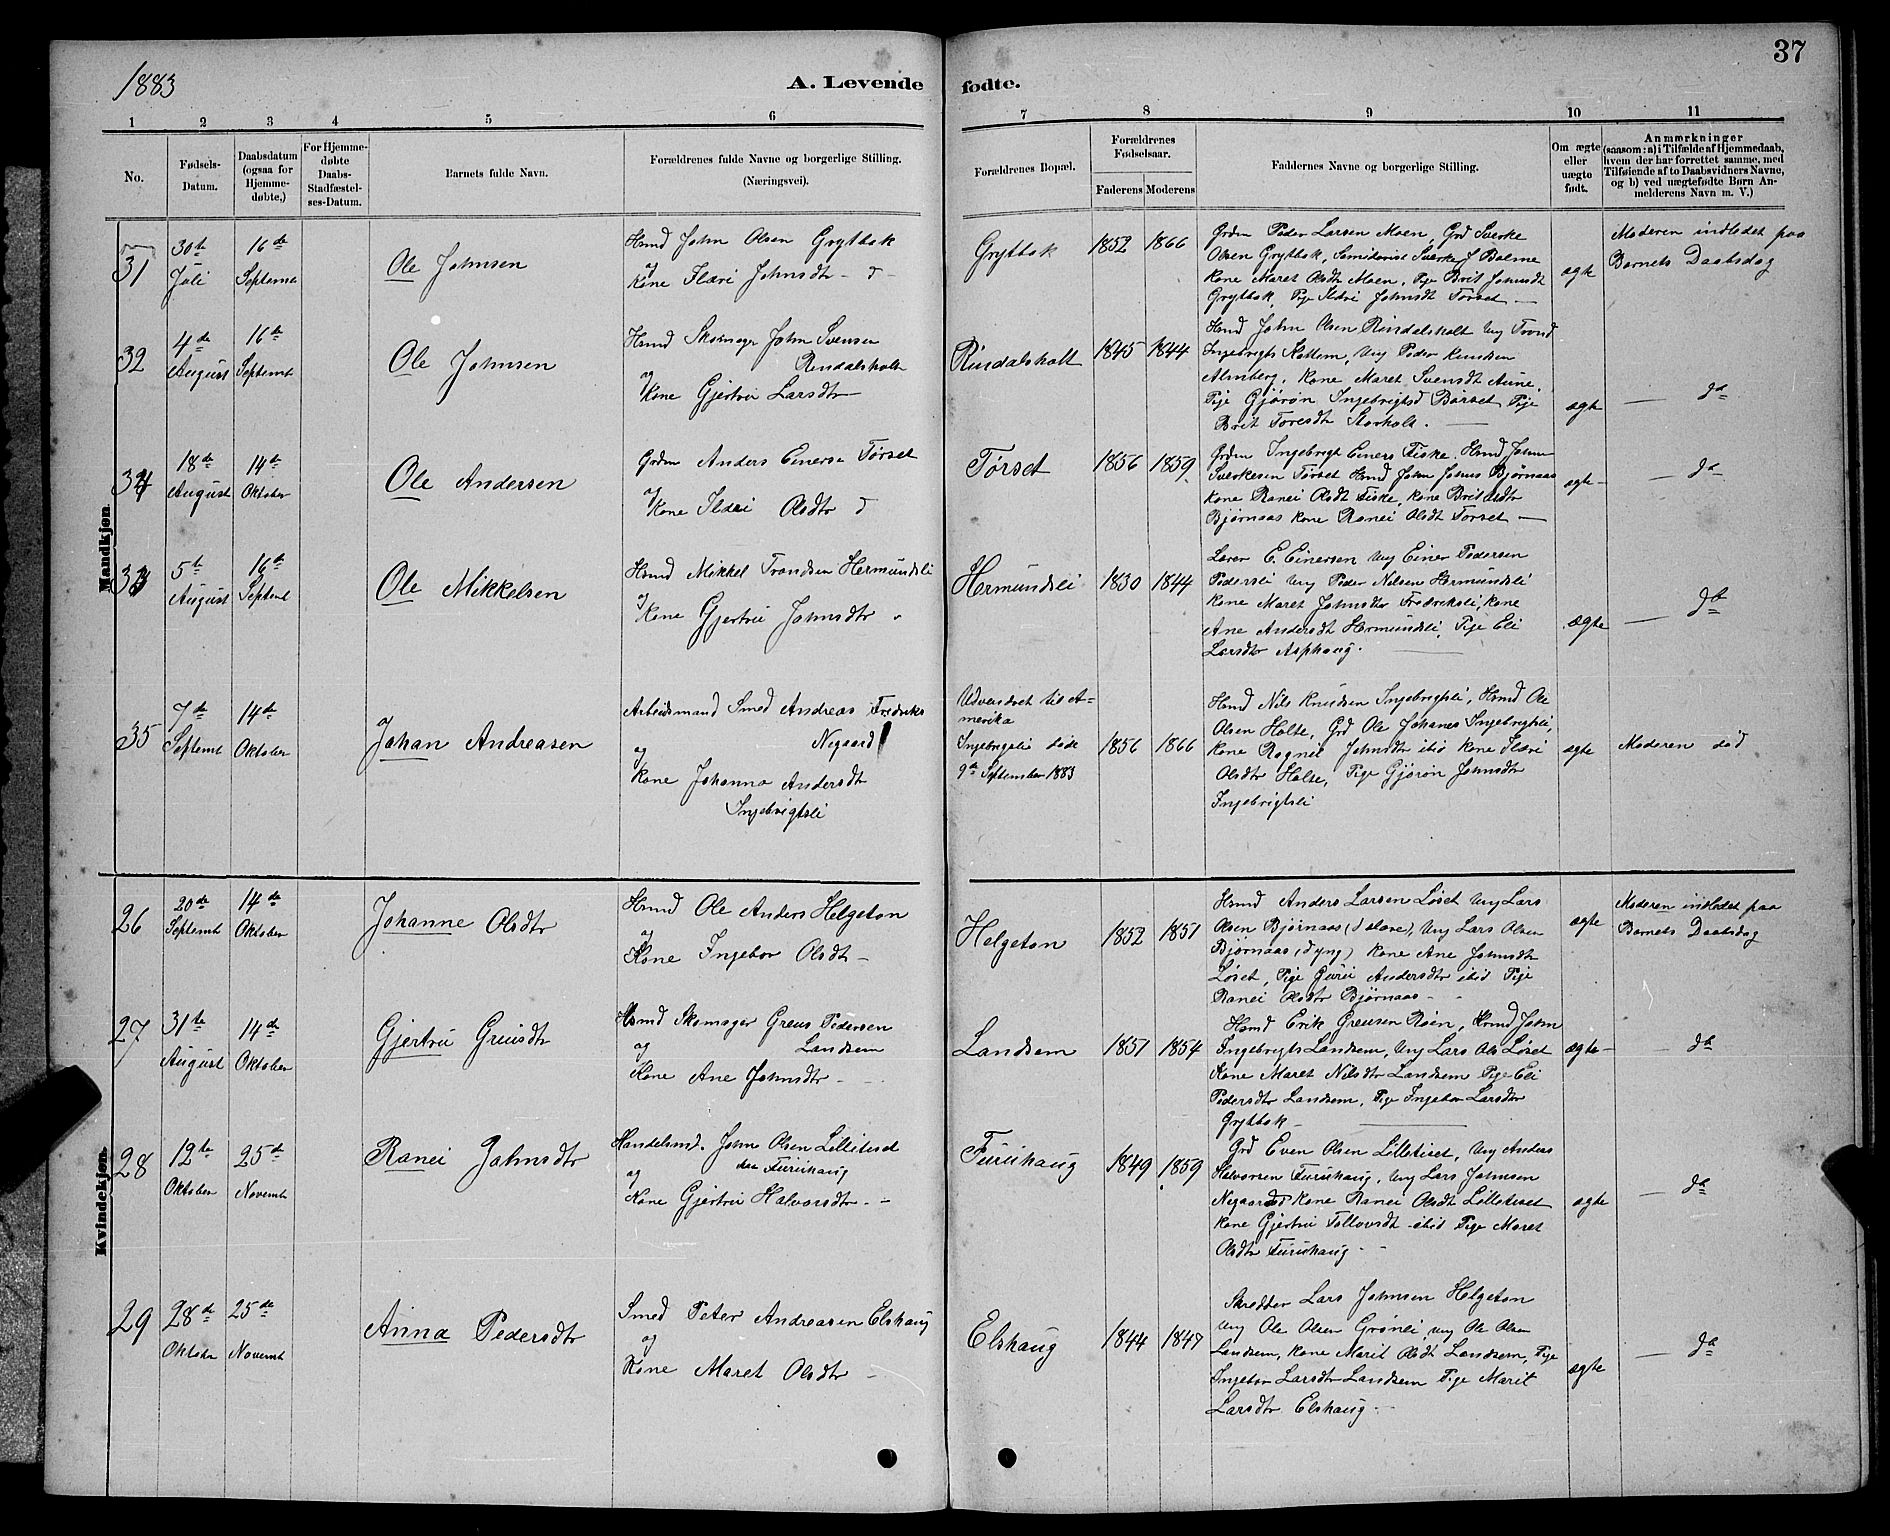 1883
A. Levende fødte.
37
1 2 3 4 5 6 7 8 9 10 11
No.
Fødsels-
Datum.
Daabsdatum
(ogsaa for
Hjemme-
døbte,)
For Hjemme-
døbte
Daabs-
Stadfæstel-
ses-Datum.
Barnets fulde Navn.
Forældrenes fulde Navne og borgerlige Stilling.
(Næringsvei).
Forældrenes Bopæl.
Forældrenes
Fødselsaar.
Faderens Moderens
Faddernes Navne og borgerlige Stilling.
Om ægte
eller
uægte
født.
Anmærkninger
(saasom: a) i Tilfælde af Hjemmedaab,
hvem der har forrettet samme, med
Tilføiende af to Daabsvidners Navne,
og b) ved uægtefødte Børn An-
melderens Navn m. V.)
Mandkjøn.
31
30te
Juli
16de
Septembr
Ole Johnsen
Hsmd John Olsen Grytbak
og
Kone Ildri Johnsdtr - d -
Grytbak
1852 1866
Grdm Peder Larsen Moen, Grd Sverke
Olsen Grytbak, Sverke J Bolme
Kone Maret Olsdtr Moen, Pige Brit Johnsdt
Grytbak, Pige Ildri Johnsdt Tørset —
ægte
Moderen indledet paa
Barnets Daabsdag
32
4de
August
16de
Septembt
Ole Johnsen
Hsmd Skomagr John Svensen
Rindalsholt
og
Kone Gjertru Larsdtr —
Rindalsholt
1845 1844
Hsmd John Olsen Rindalsholt Ung Trond
Ingebrigts Kattem, Ung Peder Knudsen
Almberg, Kone Maret Svensdt Aune,
Pige Gjørøn Ingebrigtsd Børset Pige
Brit Toresdt Storholt. —
ægte
— do
34
18de
August
14de
Oktober
Ole Andersen
Grdm Anders Einersn Tørset
og
Kone Ildri Olsdtr d
Tørset
1856 1859
Grdm Ingebrigt Einers Fiske, Hsmd John
Sverkesen Tørset Hsmd John Johns Bjørnaas
Kone Ranei Olsdt Fiske, Kone Brit Olsdtr
Bjørnaas Kone Ranei Olsdt Tørset —
ægte -
— do
33
5te
August
16de
Septembt
Ole Mikkelsen
Hsmd Mikkel Trondsen Hermundsli
og
Kone Gjertru Johnsdtr "
Hermundsli
1830 1844
Lærer E. Einersen Ung Einer Pedersen
Pedersli Ung Peder Nilsen Hermundsli
Kone Maret Johnsdtr Fredriksli, Kone
Ane Andersdt Hermundsli, Pige Eli
Larsdtr Asphaug. —
ægte
— do
35
7de
Septembt
14de
Oktober
Johan Andreasen
Arbeidsmand Smed Andreas Fredriks
Negaard
og
Kone Johanna Andersdt
Ingebrigtsli
Udvandret til A-
merika
Ingebrigtsli døde
9de September 1883
1856 1866
Hsmd Nils Knudsen Ingebrigtsli, Hsmd Ole
Olsen Holte, Grd Ole Johanes Ingebrigtsli,
Kone Ragnil Johnsdtr ibid Kone Ildri
Olsdtr Holte, Pige Gjørøn Johnsdtr
Ingebrigtsli
ægte
Moderen død
Kvindekjøn.
26
20de
Septembt
14de
Oktober
Johanne Olsdtr
Hsmd Ole Anders Helgeton
og
Kone Ingebor Olsdtr -
Helgeton
1852 1851
Hsmd Anders Larsen Løset Ung Lars
Olsen Bjørnaas (d ældre), Ung Lars Olsen
Bjørnaas, (d yng) Kone Ane Johnsdtr
Løset, Pige Guru Andersdtr ibid Pige
Ranei Olsdtr Bjørnaas -
ægte
Moderen indledet paa
Barnets Daabsdag
27
31te
August
14de
Oktober
Gjertru Greuisdtr
Hsmd Skomager Greus Pedersen
og Landsem
Kone Ane Johnsdtr -
Landsem
1851 1854
Hsmd Erik Greusen Røen, Hsmd John
Ingebrigts Landsem, Ung Lars Ols Løset
Kone Maret Nilsdtr Landsem Pige Eli
Pedersdtr Landsem, Pige Ingebor Larsdtr
Grytbak —
ægte -
— do
28
12te
Oktober
25de
Novembt
Ranei Johnsdtr
Handelsmd. John Olsen Lilletiset
Furuhaug
og
Kone Gjertru Halvorsdtr - -
Furuhaug
1849 1859
Grd Even Olsen Lilletiset, Ung Anders
Halvorsen Furuhaug, Ung Lars Johnsen
Negaard Kone Ranei Olsdt Lilletiset
Kone Gjertru Tollovsdt ibid Pige Maret
Olsdtr Furuhaug -
ægte
— do
29
28de
Oktober
25de
Novembt
Anna Pedersdtr
Smed Peter Andreasen Elshaug
og
Kone Maret Olsdtr -
Elshaug
1844 1847
Skredder Lars Johnsen Helgeton
Ung Ole Olsen Grønli, Ung Ole Olsen
Landsem, Kone Marit Olsdt Landsem, Pige
Ingebor Larsdtr Landsem Pige Marit
Larsdtr Elshaug -
ægte
— do